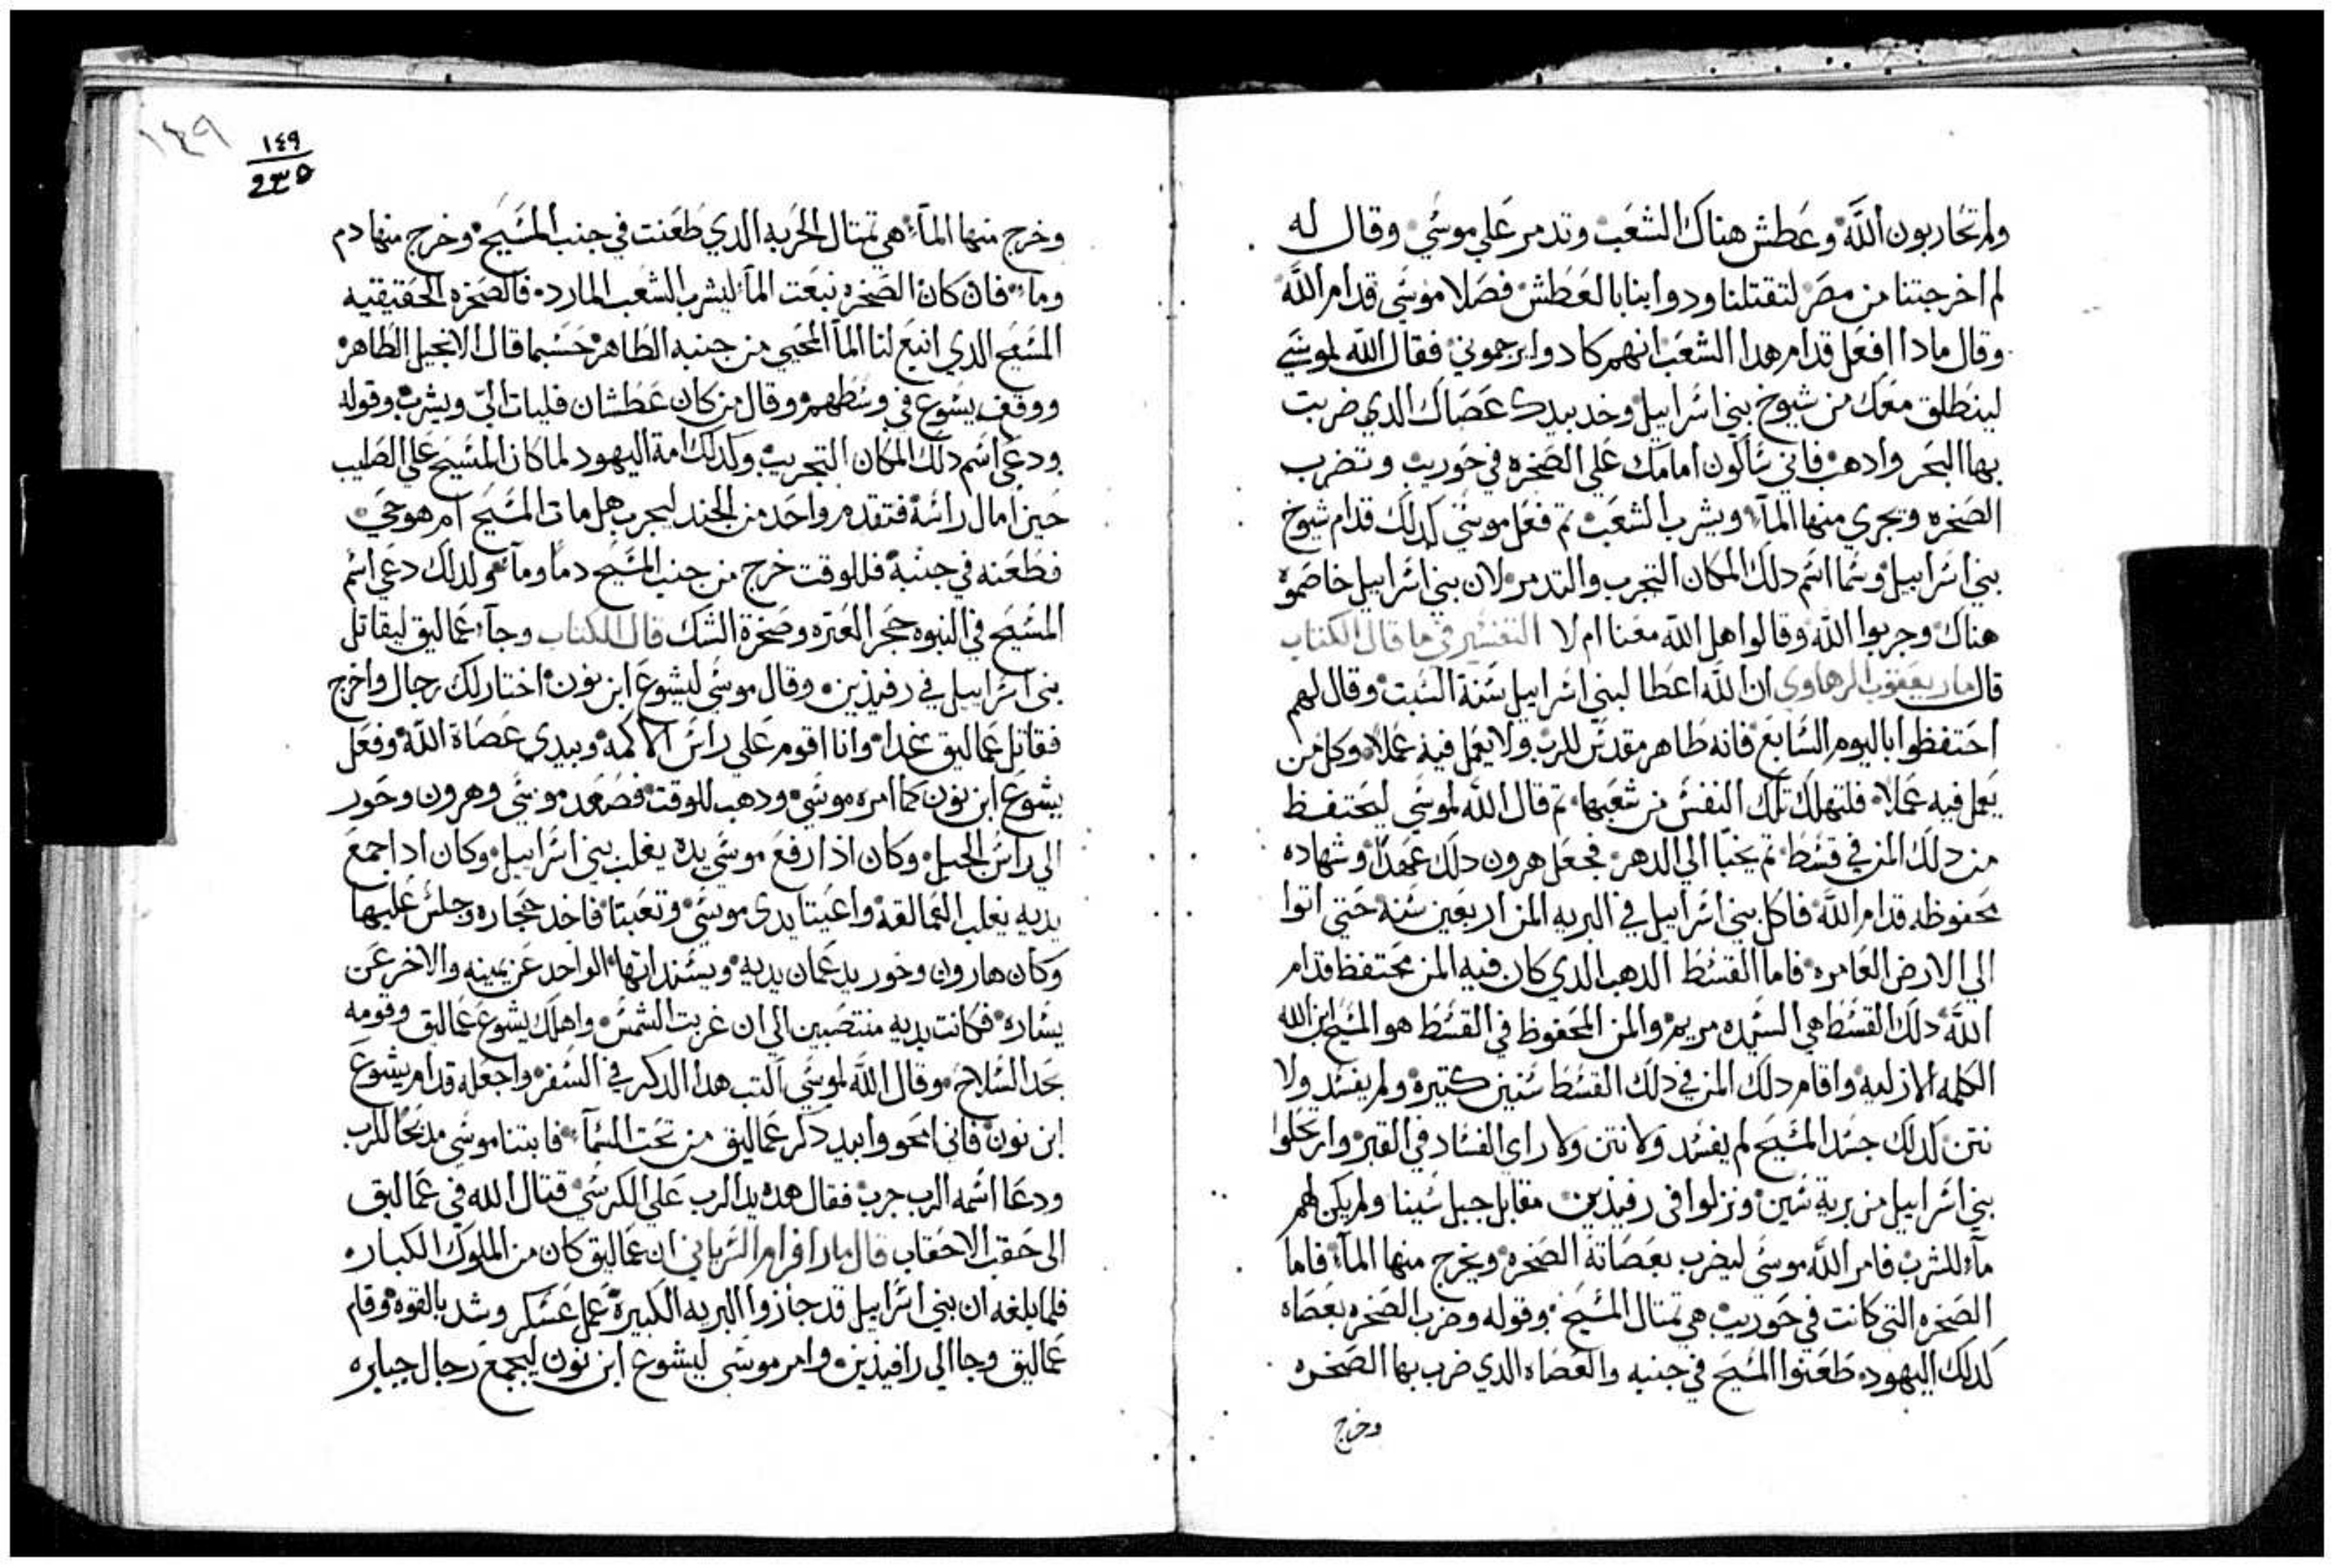 ولم تحاربون الله وعطش هناك الشعب وتدمر علي موسي وقال له
لم اخرجتنا من مصر لتقتلنا ودوابنا بالعطش فصلا موسي قدام الله
وقال مادا افعل قدام هدا الشعب انهم كادوا يرجموني فقال الله لموسي
لينطلق معك من شيوخ بني اسراييل وخد بيدك عصاك الدي ضربت
بها البحر وادهب فاني ساكون امامك علي الصخره في حوريب وتضرب
الصخره ويجري منها المآء ويشرب الشعب تم فعل موسي كدلك قدام شيوخ
بني اسراييل وسما اسم دلك المكان التجرب والتدمر لان بني اسراييل خاصموه
هناك وجربوا الله وقالوا هل الله معنا ام لا التفسير في ما قال الكتاب
قال مار يعقوب الرهاوي ان الله اعطا لبني اسراييل سنة السبت وقال لهم
احتفظوا باليوم السابع فانه طاهر مقدس للرب ولا يعمل فيه عملا وكل من
يعمل فيه عملا فلتهلك تلك النفس من شعبها تم قال الله لموسي ليحتفظ
من دلك المن في قسط تم يخبا الي الدهر فجعل هرون دلك عهدا وشهاده
محفوظه قدام الله فاكل بني اسراييل في البريه المن اربعين سنه حتي اتوا
الي الارض العامره فاما القسط الدهب الدي كان فيه المن محتفظ قدام
الله دلك القسط هي الستيده مريم والمن المحفوظ في القسط هو المسيح ابن الله
الكلمه الازليه واقام دلك المن في دلك القسط سنين كتيره ولم يفسد ولا
نتن كدلك جسد المسيح لم يفسد ولا نتن ولا راي الفساد في القبر وارتحلوا
بني اسراييل من برية سين ونزلوا في رفيذين مقابل جبل سينا ولم يكن لهم
مآء للشرب فامر الله موسي ليضرب بعصاته الصخره ويخرج منها المآء فاما
الصخره التي كانت في حوريب هي تمتال المسيح وقوله وضرب الصخره بعصاه
كدلك اليهود طعنوا المسيح في جنبه والعصاه الدي ضرب بها الصخره
وخرج
١٤٩
١٤٩
٢٣٥
وخرج منها المآء هي تمتال الحربه الدي طعنت في جنب المسيح وخرج منها دم
وماء فان كان الصخره نبعت المآء ليشرب الشعب المارد فالصخره الحقيقيه
المسيح الدي انبع لنا المآ المحيي من جنبه الطاهر حسبما قال الانجيل الطاهر
ووقف يسوع في وسطهم وقال من كان عطشان فليات الي ويشرب وقوله
ودعي اسم دلك المكان التجريب وكدلك امة اليهود لما كان المسيح علي الصليب
حين امال راسه فتقدم واحد من الجند ليجرب هل مات المسيح ام هو حي
فطعنه في جنبه فللوقت خرج من جنب المسيح دما ومآء ولدلك دعي اسم
المسيح في النبوه حجر العتره وصخرة الشك قال الكتاب وجآء عماليق ليقاتل
بني اسراييل في رفيذين وقال موسي ليشوع ابن نون اختار لك رجال واخرج
فقاتل عماليق غدا وانا اقوم علي راس الاكمه وبيدي عصاة الله وفعل
يشوع ابن نون كما امره موسي ودهب للوقت فصعد موسي وهرون وحور
الي راس الجبل وكان اذا رفع موسي يده يغلب بني اسراييل وكان اد اجمع
يديه يغلب العمالقه واعيتا يدي موسي وتعبتا فاخد حجاره وجلس عليها
وكان هارون وحور يدعمان يديه ويسندانها الواحد عن يمينه والاخر عن
يساره فكانت يديه منتصبين الي ان غربت الشمس واهلك يشوع عماليق وقومه
بحد السلاح وقال الله لموسي اكتب هدا الدكر في السفر واجعله قدام يشوع
ابن نون فاني امحو وابيد دكر عماليق من تحت السمآء فابتنا موسي مدبحا للرب
ودعا اسمه الرب جرب فقال هده يد الرب علي الكرسي قتال الله في عماليق
الي حقب الاحقاب قال مار افرام السرياني ان عماليق كان من الملوك الكباره
فلما بلغه ان بني اسراييل قد جازوا البريه الكبيره عمل عسكر وشد بالقوه وقام
عماليق وجا الي رافيذين وامر موسي ليشوع ابن نون ليجمع رجال جباره